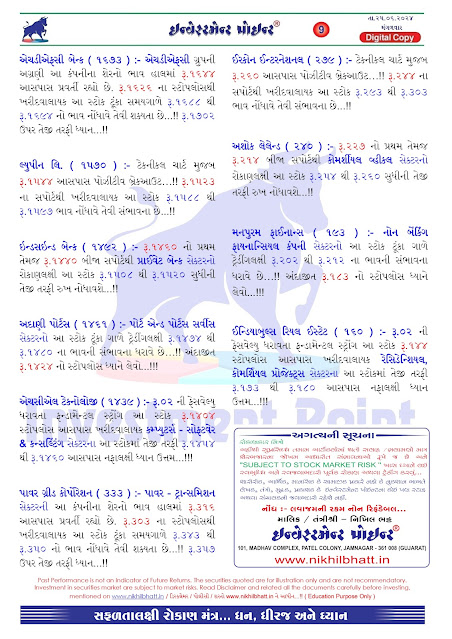 ઇન્વેસ્ટમેન્ટ પોઇન્ટ®
9
તા.૨૫.૦૬.૨૦૨૪
મંગળવાર
Digital Copy
એચડીએફસી બેન્ક ( ૧૬૭૩ ) :- એચડીએફસી ગ્રુપની
અગ્રણી આ કંપનીના શેરનો ભાવ હાલમાં રૂ.૧૬૪૪
આસપાસ પ્રવર્તી રહ્યો છે. રૂ.૧૬૨૬ ના સ્ટોપલોસથી
ખરીદવાલાયક આ સ્ટોક ટૂંકા સમયગાળે રૂ.૧૬૮૮ થી
રૂ.૧૬૯૪ નો ભાવ નોંધાવે તેવી શક્યતા છે...!! રૂ.૧૭૦૨
ઉપર તેજી તરફી ધ્યાન...!!
લ્યુપીન લિ. ( ૧૫૭૦ ) :- ટેકનીકલ ચાર્ટ મુજબ
રૂ.૧૫૪૪ આસપાસ પોઝીટીવ બ્રેકઆઉટ...!! રૂ.૧૫૨૩
ના સપોર્ટથી ખરીદવાલાયક આ સ્ટોક રૂ.૧૫૮૮ થી
રૂ.૧૫૯૭ ભાવ નોંધાવે તેવી સંભાવના છે...!!
ઇન્ડસઇન્ડ બેન્ક ( ૧૪૯૨ ) :- રૂ.૧૪૬૦ નો પ્રથમ
તેમજ રૂ.૧૪૪૦ બીજા સપોર્ટથી પ્રાઈવેટ બેન્ક સેક્ટરનો
રોકાણલક્ષી આ સ્ટોક રૂ.૧૫૦૮ થી રૂ.૧૫૨૦ સુધીની
તેજી તરફી રુખ નોંધાવશે..!!
અદાણી પોર્ટસ ( ૧૪૬૧ ) :- પોર્ટ એન્ડ પોર્ટસ સર્વીસ
સેક્ટરનો આ સ્ટોક ટૂંકા ગાળે ટ્રેડીંગલક્ષી રૂ.૧૪૭૪ થી
રૂ.૧૪૮૦ ના ભાવની સંભાવના ધરાવે છે...!! અંદાજીત
રૂ.૧૪૨૪ નો સ્ટોપલોસ ધ્યાને લેવો...!!!
એચસીએલ ટેકનોલોજી ( ૧૪૩૯) :- રૂ.૦૨ ની ફેસવેલ્યુ
ધરાવતા ફન્ડામેન્ટલ સ્ટ્રોંગ આ સ્ટોક રૂ.૧૪૦૪
સ્ટોપલોસ આસપાસ ખરીદવાલાયક કમ્પ્યુટર્સ - સોફ્ટવેર
& કન્સલ્ટિંગ સેક્ટરના આ સ્ટોકમાં તેજી તરફી રૂ.૧૪૫૪
થી રૂ.૧૪૬૦ આસપાસ નફાલક્ષી ધ્યાન ઉત્તમ...!!!
પાવર ગ્રીડ કોર્પોરેશન ( ૩૩૩ ) :- પાવર - ટ્રાન્સમિશન
સેક્ટરની આ કંપનીના શેરનો ભાવ હાલમાં રૂ.૩૧૬
આસપાસ પ્રવર્તી રહ્યો છે. રૂ.૩૦૩ ના સ્ટોપલોસથી
ખરીદવાલાયક આ સ્ટોક ટૂંકા સમયગાળે રૂ.૩૪૩ થી
રૂ.૩૫૦ નો ભાવ નોંધાવે તેવી શક્યતા છે...!! રૂ.૩૫૭
ઉપર તેજી તરફી ધ્યાન...!!
ઇસ્કોન ઇન્ટરનેશનલ ( ૨૭૯ ) :- ટેકનીકલ ચાર્ટ મુજબ
રૂ.૨૬૦ આસપાસ પોઝીટીવ બ્રેકઆઉટ...!! રૂ.૨૪૪ ના
સપોર્ટથી ખરીદવાલાયક આ સ્ટોક રૂ.૨૯૩ થી રૂ.૩૦૩
ભાવ નોંધાવે તેવી સંભાવના છે...!!
અશોક લેલેન્ડ ( ૨૪૦ ) :- રૂ.૨૨૭ નો પ્રથમ તેમજ
રૂ.૨૧૪ બીજા સપોર્ટથી કોમર્શિયલ વ્હીકલ સેક્ટરનો
રોકાણલક્ષી આ સ્ટોક રૂ.૨૫૪ થી રૂ.૨૬૦ સુધીની તેજી
તરફી રુખ નોંધાવશે..!!
મનપ્પુરમ ફાઈનાન્સ ( ૧૯૩ ) :- નોન બેંકિંગ
ફાયનાન્સિયલ કંપની સેક્ટરનો આ સ્ટોક ટૂંકા ગાળે
ટ્રેડીંગલક્ષી રૂ.૨૦૨ થી રૂ.૨૧૨ ના ભાવની સંભાવના
ધરાવે છે...!! અંદાજીત રૂ.૧૮૩ નો સ્ટોપલોસ ધ્યાને
લેવો...!!!
ઈન્ડિયાબુલ્સ રિયલ ઈસ્ટેટ ( ૧૬૦ ) :- રૂ.૦૨ ની
ફેસવેલ્યુ ધરાવતા ફન્ડામેન્ટલ સ્ટ્રોંગ આ સ્ટોક રૂ.૧૪૪
સ્ટોપલોસ આસપાસ ખરીદવાલાયક રેસિડેન્શિયલ,
કોમર્શિયલ પ્રોજેક્ટ્સ સેક્ટરના આ સ્ટોકમાં તેજી તરફી
રૂ.૧૭૩ થી રૂ.૧૮૦ આસપાસ નફાલક્ષી ધ્યાન
ઉત્તમ...!!!
અગત્યની સૂચના
"SUBJECT TO STOCK MARKET RISK"
નોંધ :- લવાજમની રકમ નોન રિફંડેબલ...
માલિક / તંત્રીશ્રી - નિખિલ ભટ્ટ
ઇન્વેસ્ટમેન્ટ પોઇન્ટ®
101, MADHAV COMPLEX, PATEL COLONY, JAMNAGAR - 361 008 (GUJARAT)
www.nikhilbhatt.in
Past Performance is not an Indicator of Future Returns. The securities quoted are for illustration only and are not recommendatory.
Investment in securities market are subject to market risks. Read Disclaimer and related all the documents carefully before investing,
mentioned on www.nikhilbhatt.in
( Education Purpose Only )
સફળતાલક્ષી રોકાણ મંત્ર... ધન, ધીરજ અને ધ્યાન